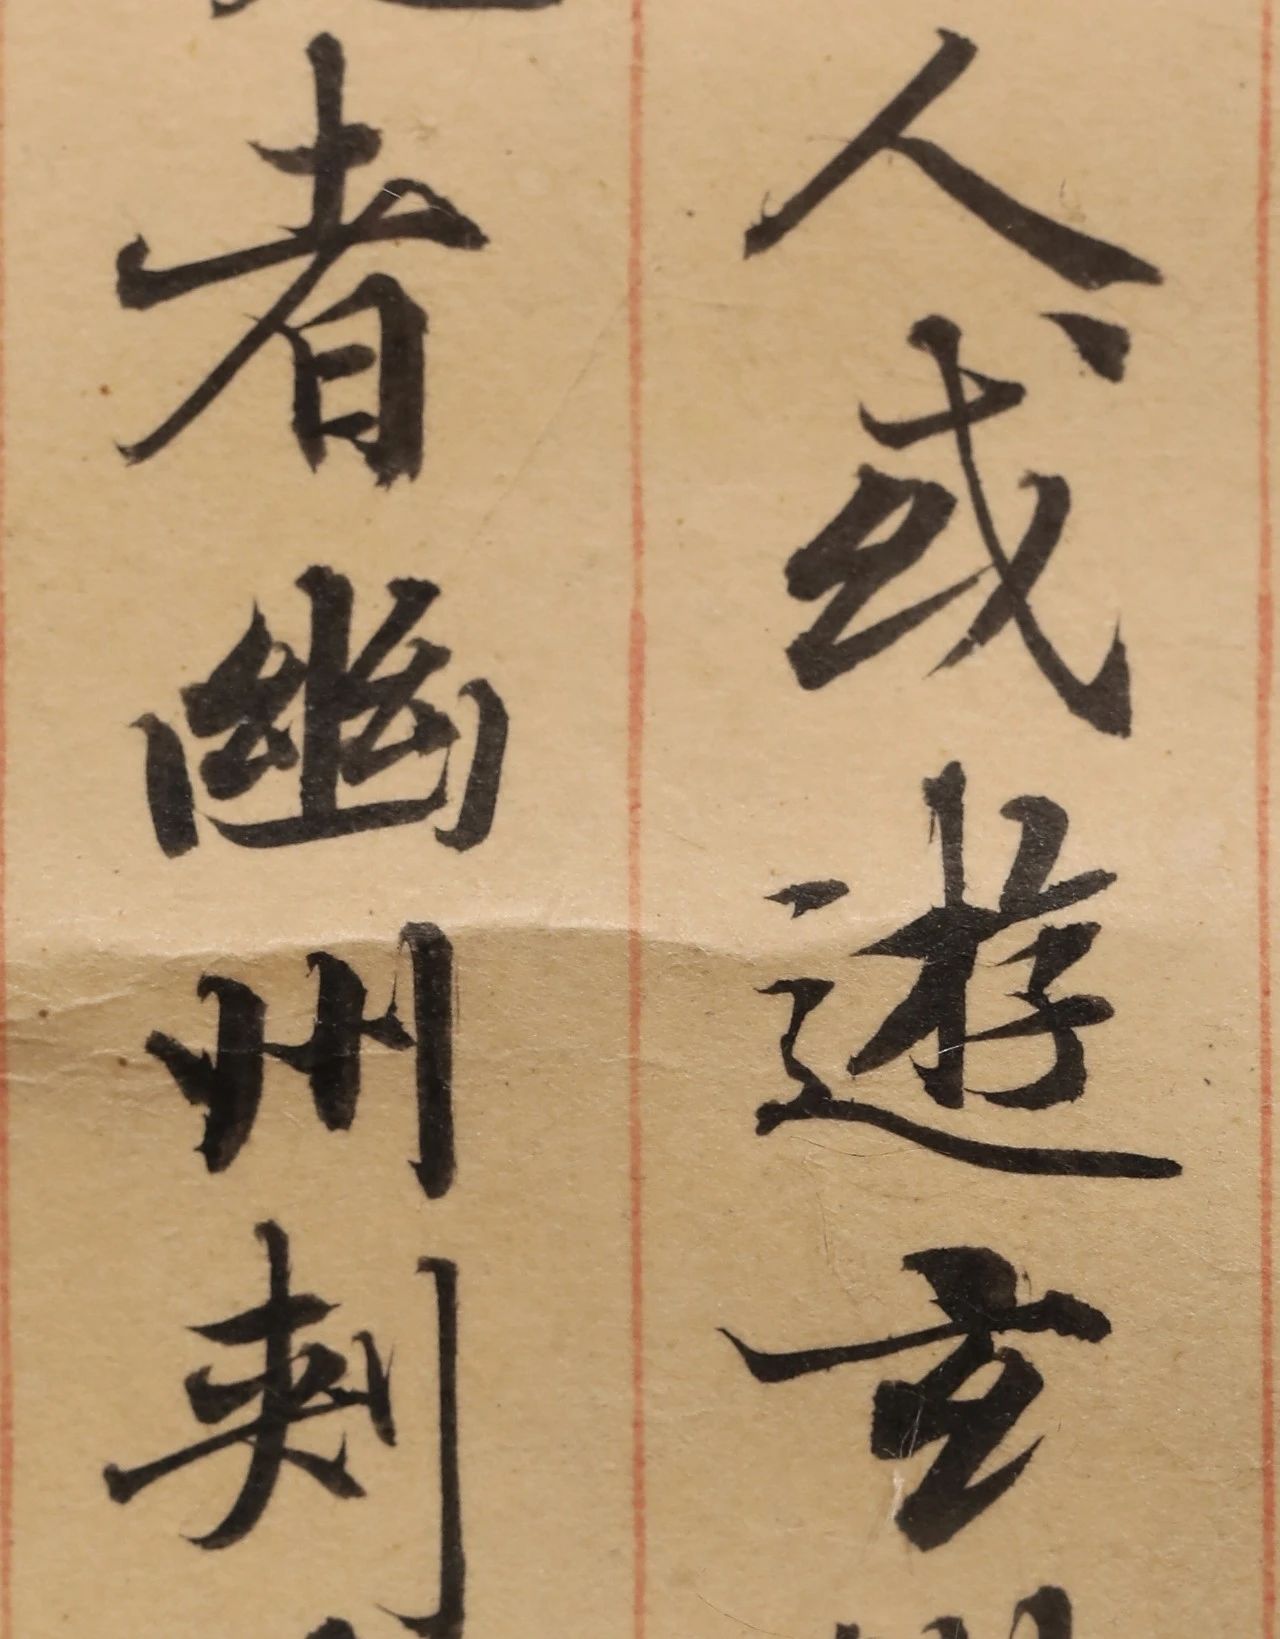 人或遊玄
者幽州刺